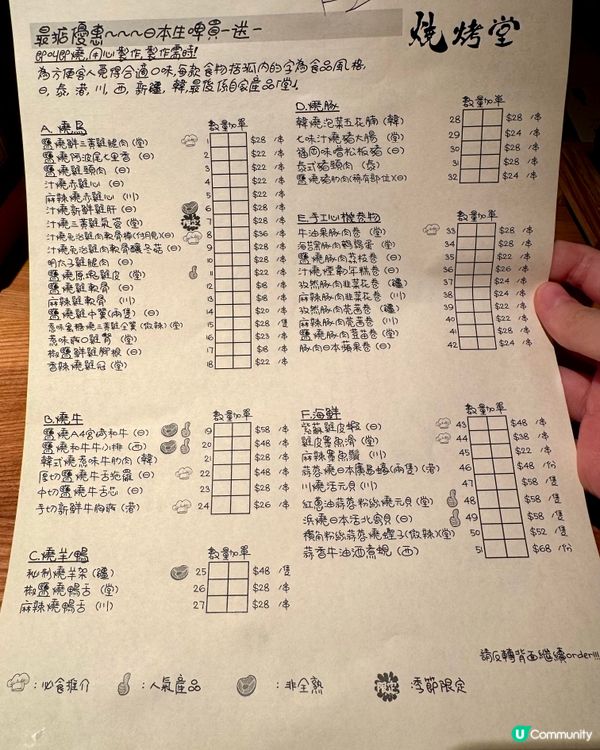 最抵優惠~~~日本生啤買一送一
燒烤堂
即叫即燒,用心製作,製作需時!
為方便客人覓得合適口味,每款食物括弧內的字為食品風格,
日,泰,港,川,西,新疆,韓,最後係自家產品「堂」.
A. 燒鳥 數量 加單
鹽燒鮮三黃雞腿肉 (堂) 1 $28 /串
鹽燒阿波尾七里香 (日) 2 $22 /串
鹽燒雞頸肉 (日) 3 $22 /串
汁燒赤雞心 (日) 4 $22 /串
麻辣燒赤雞心 (川) 5 $22 /串
汁燒新鮮雞肝 (日) 6 $28 /串
汁燒三黃雞 (堂) 7 $28 /串
汁燒免治雞肉軟骨棒 (日) 8 $36 /串
汁燒免治雞肉軟骨釀冬菇 (日) 9 $28 /串
明太子雞腿肉 (日) 10 $28 /串
鹽燒原塊雞皮 (堂) 11 $22 /串
鹽燒雞軟骨 (日) 12 $18 /串
麻辣雞軟骨 (川) 13 $18 /串
鹽燒雞中翼(兩隻) (日) 14 $20 /串
意味蜜糖燒三黃雞全翼(微辣) (堂) 15 $28 /隻
惹味爽口雞腎 (堂) 16 $23 /串
椒鹽鮮雞腳根 (日) 17 $18 /串
香辣雞冠 (堂) 18 $22 /串
B. 燒牛 數量 加單
鹽燒A4宮崎和牛 (日) 19 $58 /串
鹽燒和牛牛小排 (西) 20 $48 /串
韓式燒惹味牛肋肉 (韓) 21 $28 /串
厚切鹽燒牛舌 (日) 22 $48 /串
中切鹽燒牛舌芯 (日) 23 $28 /串
手切新鮮牛胸爽 (港) 24 $26 /串
C. 燒羊/鴨 數量 加單
秘制燒羊架 (疆) 25 $48 /隻
椒鹽燒鴨舌 (堂) 26 $28 /串
麻辣燒鴨舌 (川) 27 $28 /串
D. 燒豚 數量 加單
韓燒泡菜五花腩 (韓) 28 $28 /串
七味汁燒豬大腸 (堂) 29 $24 /串
福岡味噌松板豬 (日) 30 $28 /串
泰式豬頸肉 (泰) 31 $28 /串
鹽燒豬肋肉(稀有部位)(日) 32 $24 /串
E. 手工心機卷物 數量 加單
牛油果豚肉卷 (日) 33 $28 /串
海苔豚肉鵪鶉蛋 (堂) 34 $28 /串
鹽燒豚肉荔枝卷 (日) 35 $22 /串
汁燒煙韌年糕卷 (日) 36 $26 /串
孜然豚肉韭菜花卷 (疆) 37 $24 /串
麻辣豚肉韭菜花卷 (川) 38 $24 /串
孜然豚肉芫茜卷 (疆) 39 $22 /串
麻辣豚肉芫茜卷 (川) 40 $22 /串
鹽燒豚肉豆苗卷 (堂) 41 $28 /串
豚肉日本蘋果卷 (日) 42 $24 /串
F. 海鮮 數量 加單
紫蘇雞皮蝦 (日) 43 $48 /串
雞皮墨魚滑 (堂) 44 $38 /串
麻辣墨魚鬚 (川) 45 $22 /串
蒜蓉燒日本廣島蠔(兩隻) (港) 46 $48 /份
川燒元貝 (川) 47 $58 /串
紅蔥油蒜蓉粉絲燒元貝 (堂) 48 $58 /隻
浜燒日本活北寄貝 (日) 49 $58 /隻
橫角粉絲蒜蓉燒蟶子(微辣)(堂) 50 $52 /隻
蒜香牛油酒煮蜆 (西) 51 $68 /份
請反轉背面繼續order!!!
:必食推介 :人氣產品 :非全熟 :季節限定
U Community